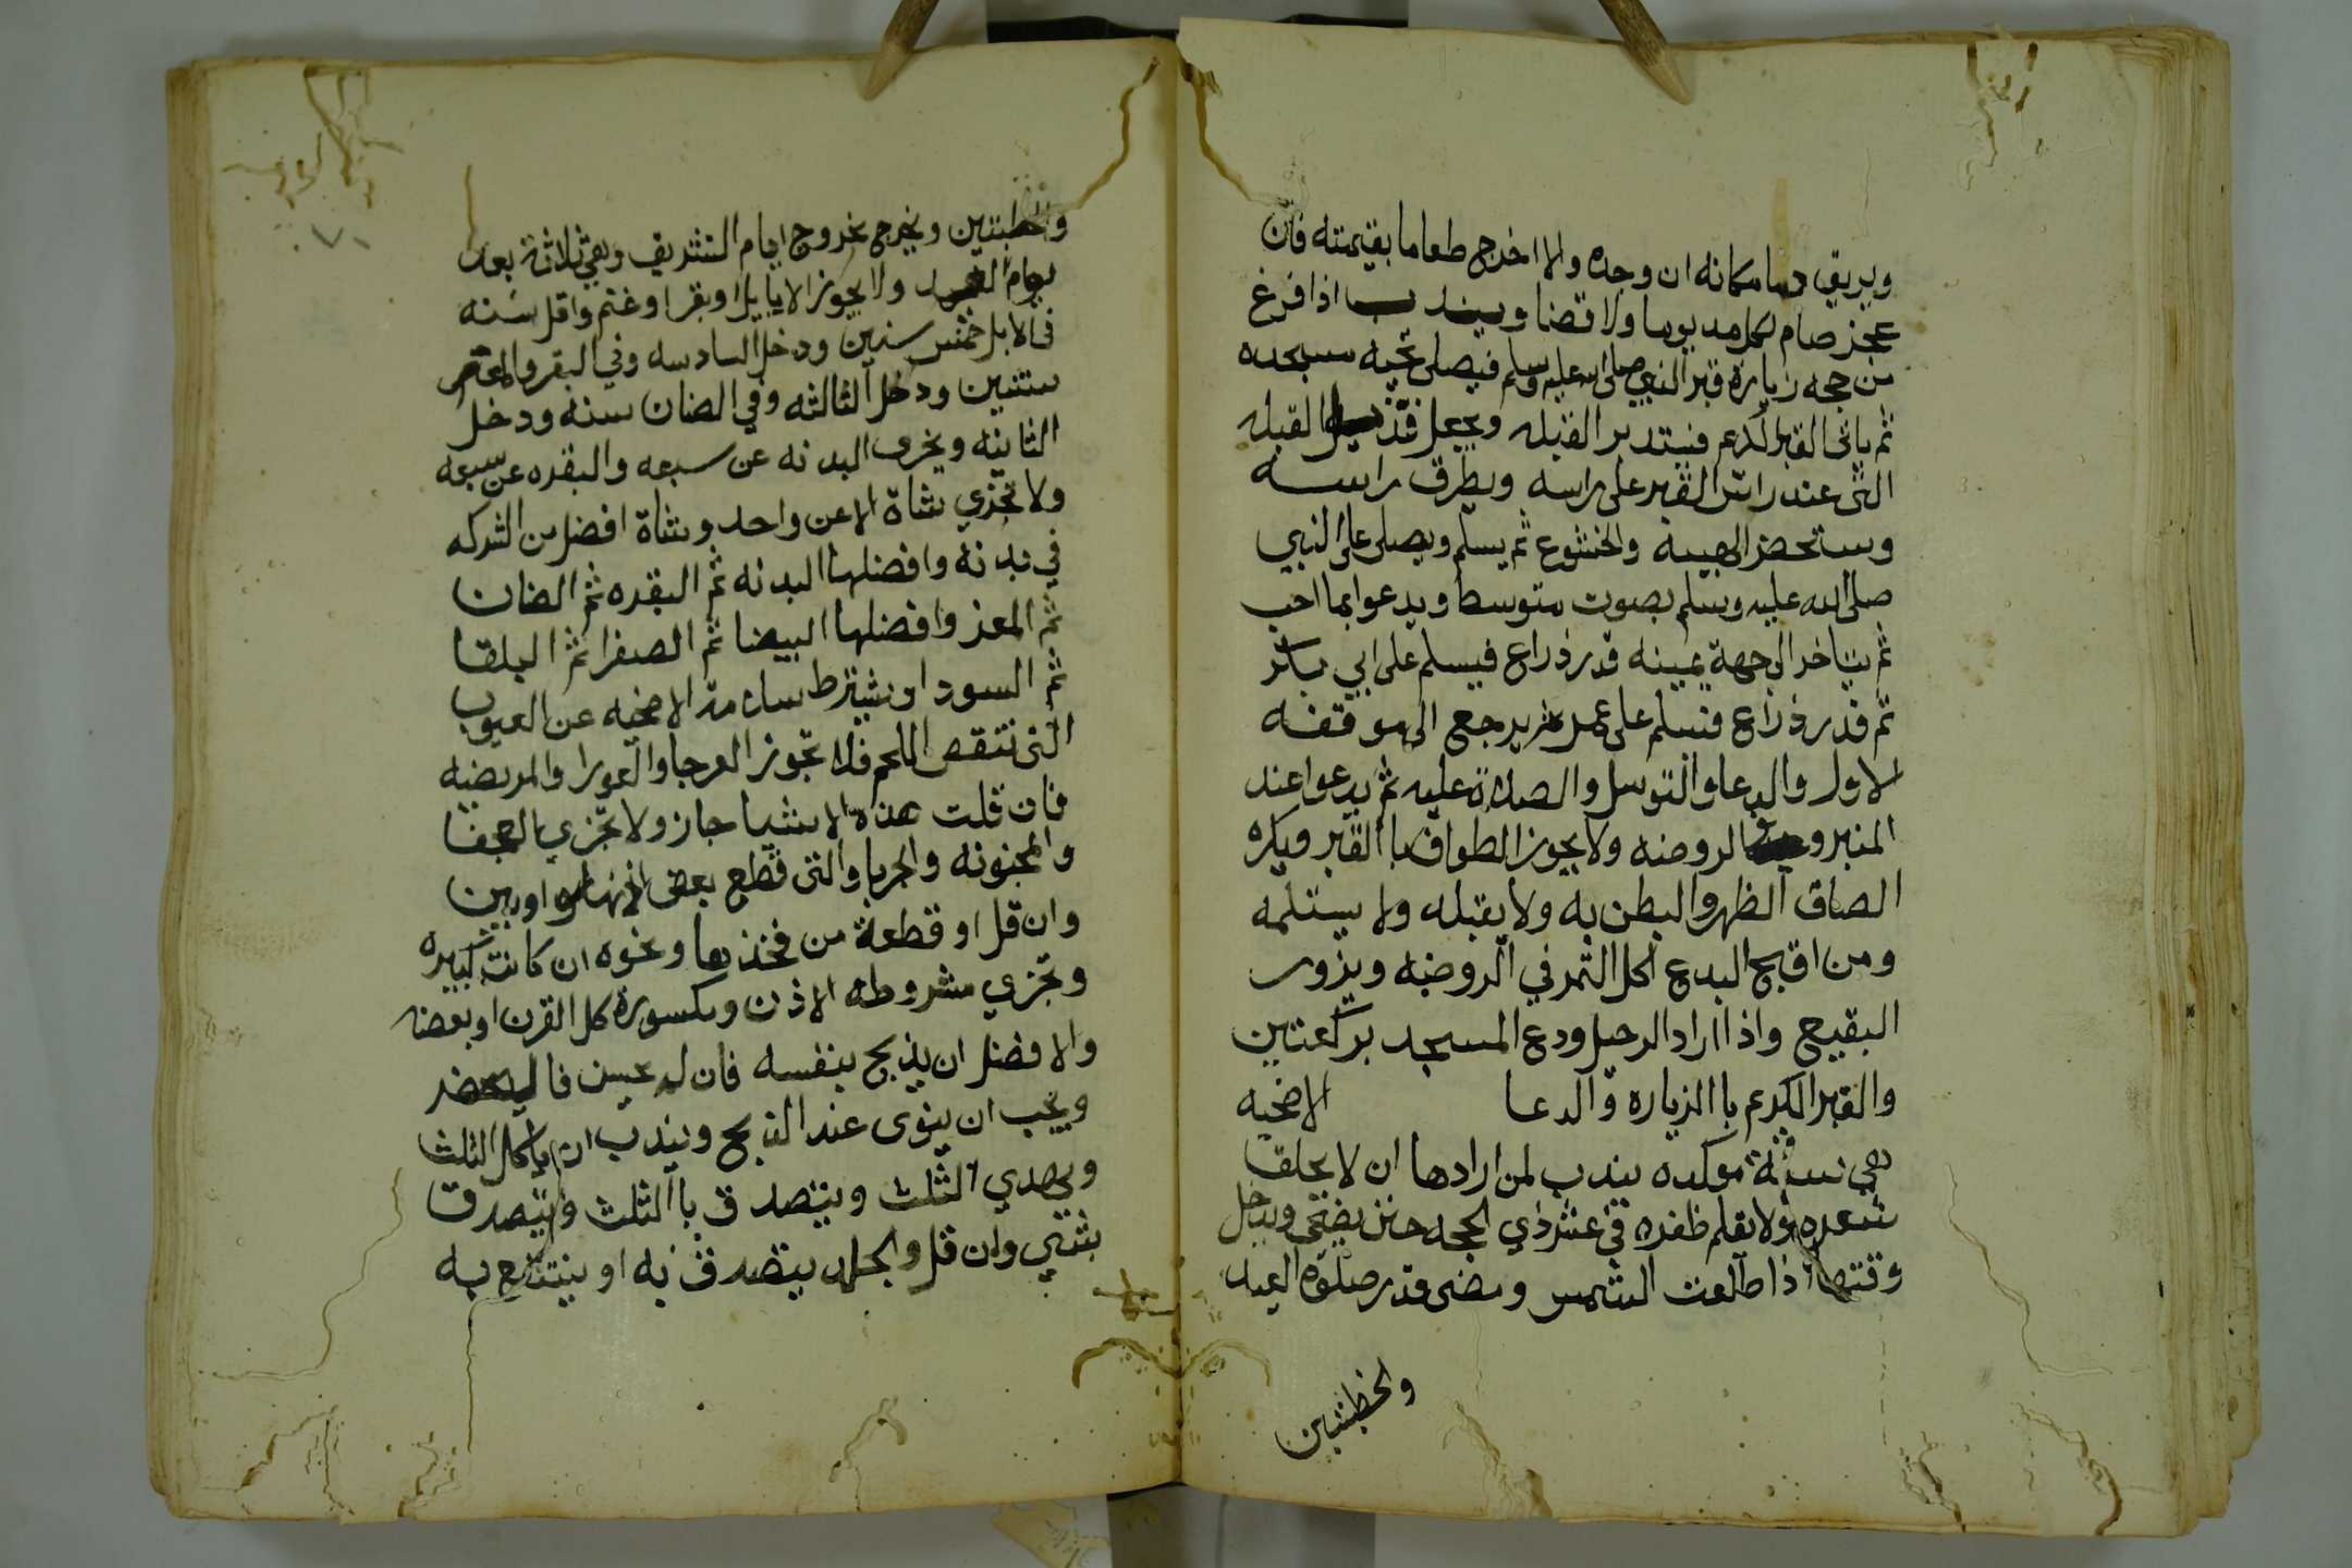 ويريق دما مكانه ان وجده والا اخرج طعاما بقيمته فان
عجز صام لكل مد يوما ولا قضا ويندب اذا فرغ
من حجه زيارة قبر النبي صلى الله عليه وسلم فيصلي تحيه مسجده
ثم ياتي القبر المكرم فيستدبر القبله ويجعل قنديل القبله
التي عند راس القبر على راسه ويطرق راسه
ويستحضر الهيبه والخشوع ثم يسلم ويصلي على النبي
صلى الله عليه وسلم بصوت متوسط ويدعوا بما احب
ثم يتاخر الى جهة يمينه قدر ذراع فيسلم على ابي بكر
ثم قدر ذراع فيسلم على عمر ثم يرجع الى موقفه
الاول والدعا والتوسل والصلاة عليه ثم يدعوا عند
المنبر وفي الروضه ولا يجوز الطواف باالقبر ويكره
الصاق الظهر والبطن به ولا يقبله ولا يستلمه
ومن اقبح البدع اكل التمر في الروضه ويزور
البقيع واذا اراد الرحيل ودع المسجد بركعتين
والقبر المكرم باالزياره والدعا الاضحيه
هي سنة موكده يندب لمن ارادها ان لا يحلق
شعره ولا يقلم ظفره في عشر ذي الحجه حتى يضحي ويدخل
وقتها اذا طلعت الشمس ومضى قدر صلوة العيد
والخطبتين
والخطبتين ويخرج بخروج ايام التشريق وهي ثلاثة بعد
يوم العيد ولا يجوز الا بابل او بقر او غنم واقل سنه
في الابل خمس سنين ودخل السادسه وفي البقر والمعز
سنتين ودخل الثالثه وفي الضان سنه ودخل
الثانيه ويجزى البدنه عن سبعه والبقره عن سبعه
ولا تجزي شاة الا عن واحد وشاة افضل من الشركه
في بدنه وافضلها البدنه ثم البقره ثم الضان
ثم المعز وافضلها البيضا ثم الصفرا ثم البلقا
ثم السودا ويشترط سلامة الاضحيه عن العيوب
التي تنقص اللحم فلا تجوز العرجا والعورا والمريضه
فان قلت هذه الاشيا جاز ولا تجزي العجفا
والمجنونه والجربا والتي قطع بعض اذنها او بين
وان قل او قطعة من فخذها ونحوه ان كانت كبيره
وتجزي مشروطه الاذن ومكسورة كل القرن او بعضه
والافضل ان يذبح بنفسه فان لم يحسن فاليحضر
ويجب ان ينوى عند الذبح ويندب ان ياكل الثلث
ويهدي الثلث ويتصدق باالثلث ويتصدق
بشي وان قل والجلد يتصدق به او ينتفع به